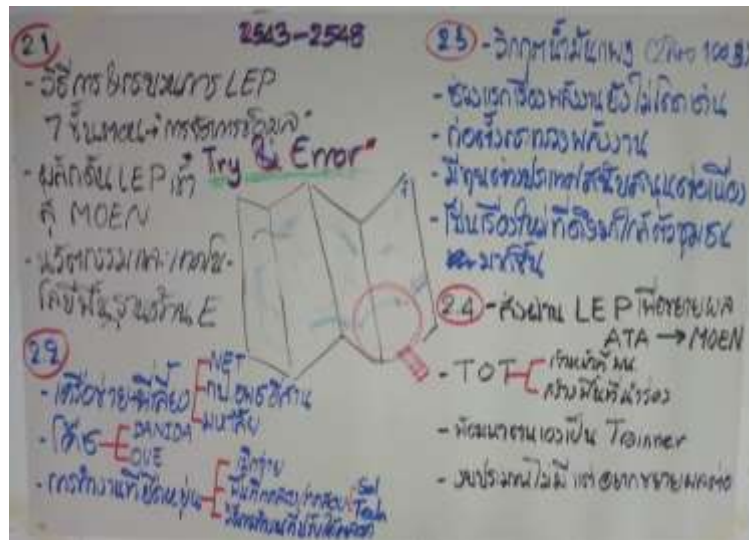 2543-2548
2.1
- วิธีการ/กระบวนการ LEP
7 ขั้นตอน → การจัดการข้อมูล
"Try & Error"
- ผลักดัน LEP เข้า
สู่ MOEN
- นวัตกรรมและเทคโน-
โลยีพื้นฐานด้าน E
2.2
- เครือข่าย+พี่เลี้ยง
NET
อีสาน
มหาลัย
DANIDA
- การทำงานที่ยืดหยุ่น
2.3 - วิกฤตน้ำมันแพง
- ช่วงแรกเรื่องพลังงานยังไม่โดดเด่น
- ก่อตั้งกระทรวงพลังงาน
- มีทุนต่างประเทศสนับสนุนต่อเนื่อง
- เป็นเรื่องใหม่ที่ดึงมาใกล้ตัวชุมชน
มากขึ้น
2.4 - ส่งผ่าน LEP เพื่อขยายผล
ATA → MOEN
- TOT
เจ้าหน้าที่
สร้างพื้นที่นำร่อง
- พัฒนาตนเองเป็น
- งบประมาณไม่มี แต่อยากขยายผลต่อ